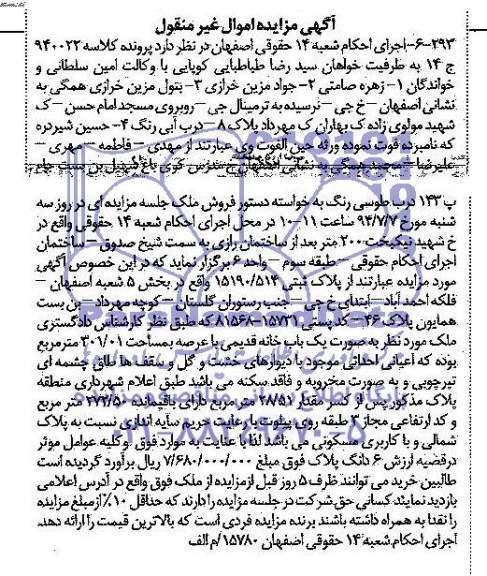 آگهی مزایده اموال غیر منقول
۶-۲۹۳-اجرای احکام شعبه ۱۴ حقوقی اصفهان در نظر دارد پرونده کلاسه ۹۴۰۰۲۲
ج ۱۴ به طرفیت خواهان سید رضا طباطبایی کوپایی با وکالت امین سلطانی و
خواندگان ۱- زهره صامتی ۲- جواد مزین خرازی ۳- بتول مزین خرازی همگی به
نشانی اصفهان – خ جی – نرسیده به ترمینال جی – روبروی مسجد امام حسن – ک
شهید مولوی زاده ک بهاران ک مهرداد پلاک ۸ – درب آبی رنگ ۴- حسین شیرده
که نامبرده فوت نموده ورثه حین الفوت وی عبارتند از مهدی – فاطمه – مهری –
علیرضا – محمد همگی به نشانی اصفهان خ مدرس کوی باغ بن بست
پ ۱۴۳ درب طوسی رنگ به خواسته دستور فروش ملک جلسه مزایده ای در روز سه
شنبه مورخ ۹۴/۷/۷ ساعت ۱۱-۱۰ در محل اجرای احکام شعبه ۱۴ حقوقی واقع در
خ شهید نیکبخت-۲۰۰ متر بعد از ساختمان رازی به سمت شیخ صدوق – ساختمان
اجرای احکام حقوقی – طبقه سوم – واحد ۶ برگزار نماید که در این خصوص آگهی
مورد مزایده عبارتند از پلاک ثبتی ۱۵۱۹۰/۵۱۴ واقع در بخش ۵ شعبه اصفهان –
فلکه احمد آباد – ابتدای خ جی – جنب رستوران گلستان – کوچه مهرداد – بن بست
همایون پلاک ۴۶ – کد پستی ۱۵۷۳۱-۸۱۵۶۸ که طبق نظر کارشناس دادگستری
ملک مورد نظر به صورت یک باب خانه قدیمی با عرصه بمساحت ۳۰۱/۰۱ مترمربع
بوده که اعیانی احداثی موجود با دیوارهای خشت و گل و سقف ها طاق چشمه ای
تیرچوبی و به صورت مخروبه و فاقد سکنه می باشد طبق اعلام شهرداری منطقه
پلاک مذکور پس از کسر مقدار ۲۸/۵۱ متر مربع دارای باقیمانده ۲۷۲/۵۰ متر مربع
و کد ارتفاعی مجاز ۳ طبقه روی پیلوت با رعایت حریم سایه اندازی نسبت به پلاک
شمالی و با کاربری مسکونی می باشد لذا با عنایت به موارد فوق و کلیه عوامل موثر
در قضیه ارزش ۶ دانگ پلاک فوق مبلغ ۷/۶۸۰/۰۰۰/۰۰۰ ریال برآورد گردیده است
طالبین خرید می توانند ظرف ۵ روز قبل از مزایده از ملک فوق واقع در آدرس اعلامی
بازدید نمایند کسانی حق شرکت در جلسه مزایده را دارند که حداقل ۱۰٪ از مبلغ مزایده
را نقدا به همراه داشته باشند برنده مزایده فردی است که بالاترین قیمت را ارائه دهد.
اجرای احکام شعبه ۱۴ حقوقی اصفهان ۱۵۷۸۰/م الف